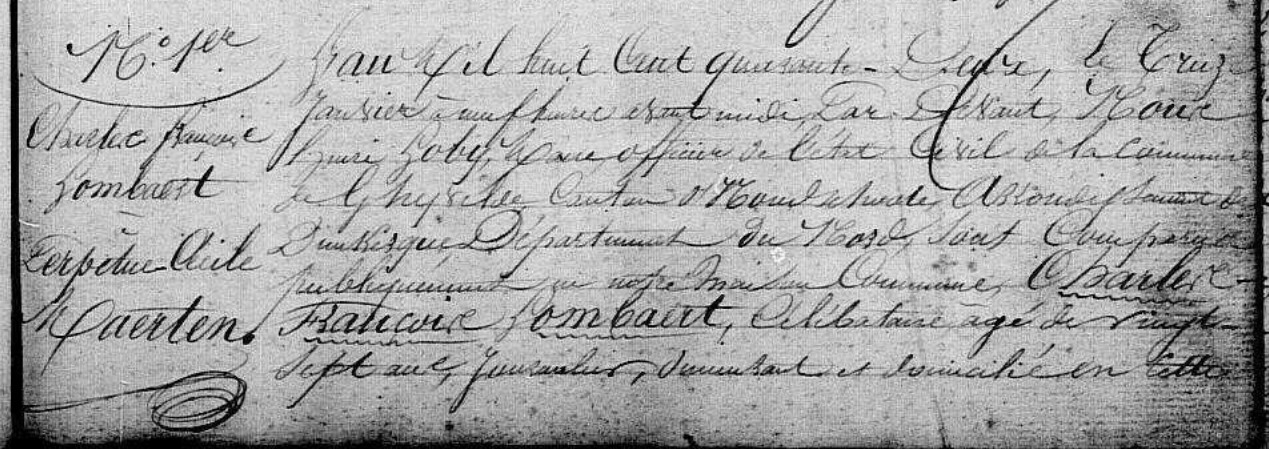 N.o 1er
Charles François
Lombaert
&
Perpétue Cécile
Maerten.
L'an Mil huit Cent quarante-Deux, le Treize
Janvier à neuf heures avant midi, Par-Devant Nous
henri Goby, Maire officier de l'état Civil de la Commune
de Ghyvelde Canton d'Hondschoote, Arrondissement de
Dunkerque, Département du Nord, sont Comparus
publiquement en notre Maison Commune, Charles-
François Lombaert, Célibataire, agé de vingt-
sept ans, Journalier, demeurant et domicilié en cette